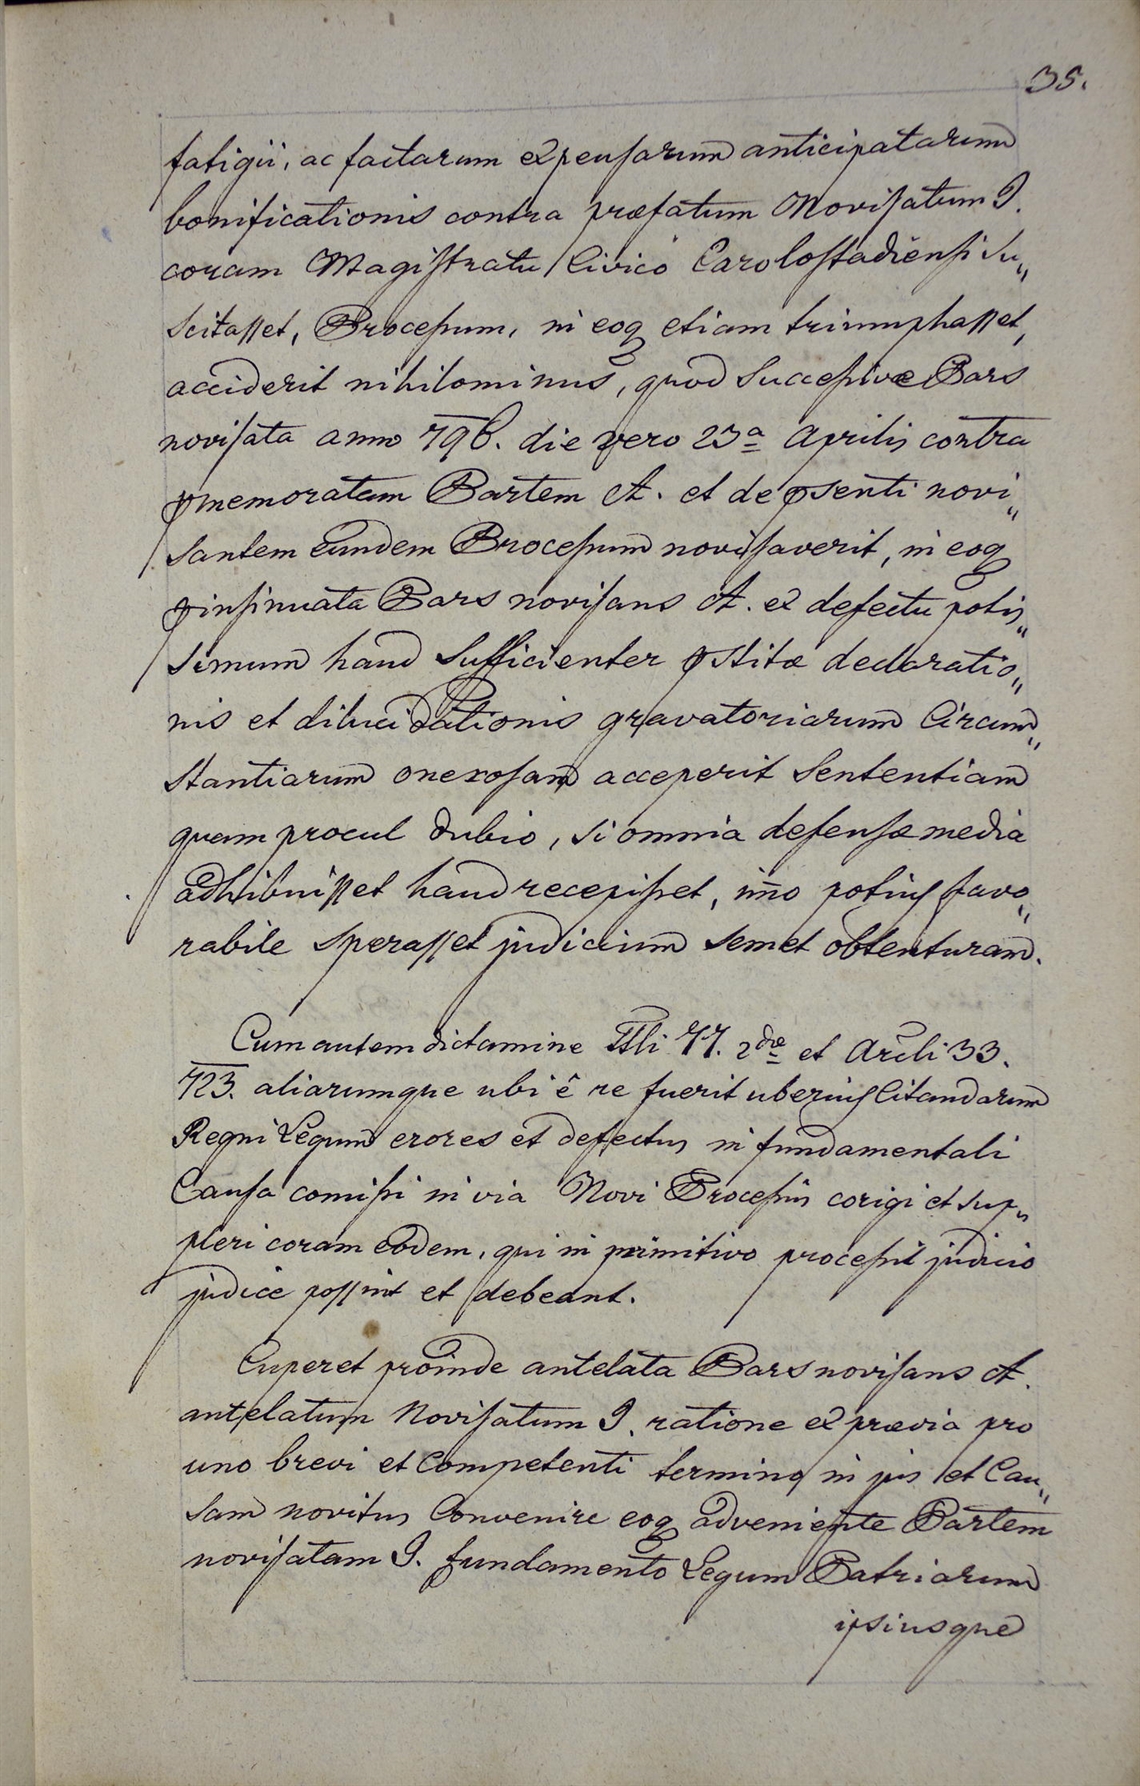 35.
fatigii, ac factarum expensarum anticipatarum
bonificationis contra præfatum Novisatum I.
coram Magistratu Civico Carolostadiensi su„
scitasset, Processum, in eoq etiam triumphasset,
acciderit nihilominus, quod successive Pars
novisata anno 796. die vero 23ª Aprilis contra
pmemoratam Partem A. et de psenti novi„
santem eundem Processum novisaverit, in eoq
pinsinuata Pars novisans A. ex defectu potis„
simum haud sufficienter pstitæ declaratio„
nis et dilucidationis gravatoriarum Circum„
stantiarum onerosam acceperit Sententiam
quam procul dubio, si omnia defensæ media
adhibuisset haud recepisset, imo potius favo„
rabile sperasset judicium semet obtenturam.
Cum autem dictamine Ttli 77. 2dæ et Arcli 33.
723. aliarumque ubi ê re fuerit uberius Citandarum
Regni Legum erores et defectus in fundamentali
Causa comissi in via Novi Processus corigi et sup„
pleri coram eodem, qui in primitivo processit judicio
judice possint et debeant.
Cuperet proinde antelata Pars novisans A.
antelatum Novisatum I. ratione ex prævia pro
uno brevi et Competenti termino in jus et Cau„
sam novitus Convenire eoq adveniente Partem
novisatam I. fundamento Legum Patriarum
ipsiusque